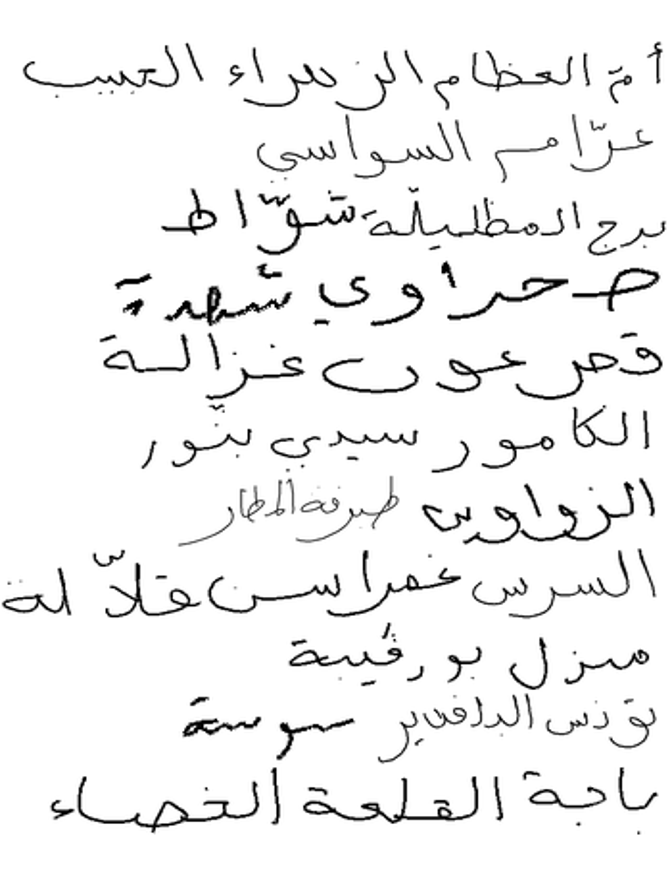 أمّ العظام الزهراء
عرّام السواسي
برج المظيلّة شوّاط
صحراوي شهدة
قصر عون غزالة
الكامور سيدي بنّور
الزواوين طبرقة المطار
السرس غمراسن قلاّلة
منزل بورقيبة
تونس البلافدير سوسة
باجة القلعة